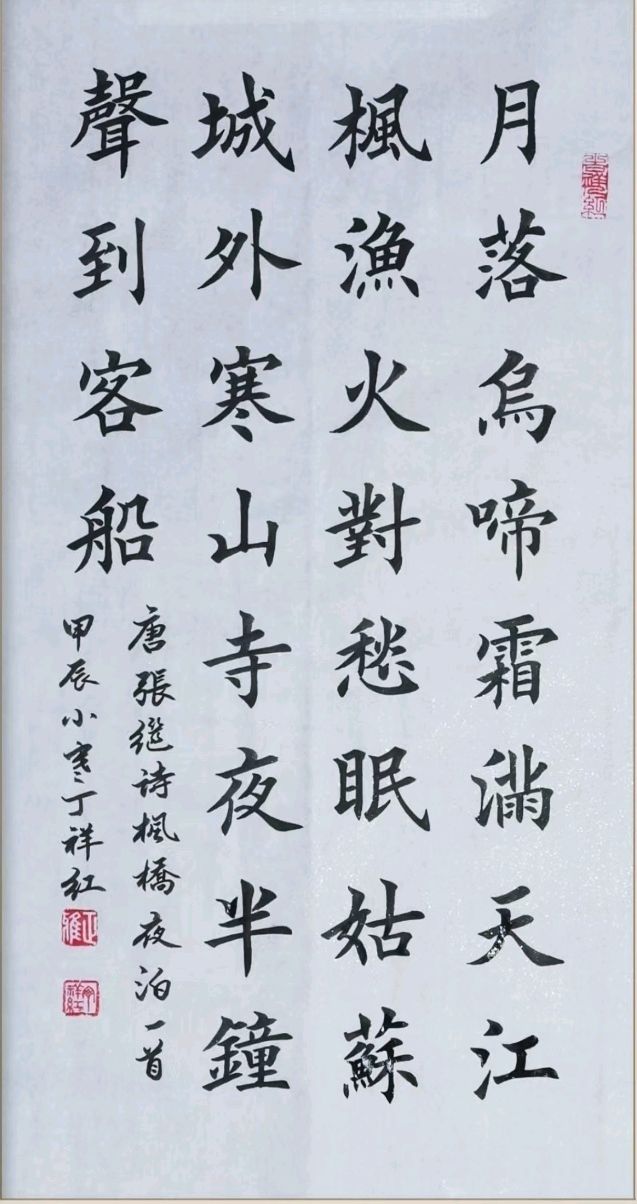 月落烏啼霜滿天江
楓漁火對愁眠姑蘇
城外寒山寺夜半鐘
聲到客船
唐張繼诗楓橋夜泊一首
甲辰小寒丁祥红